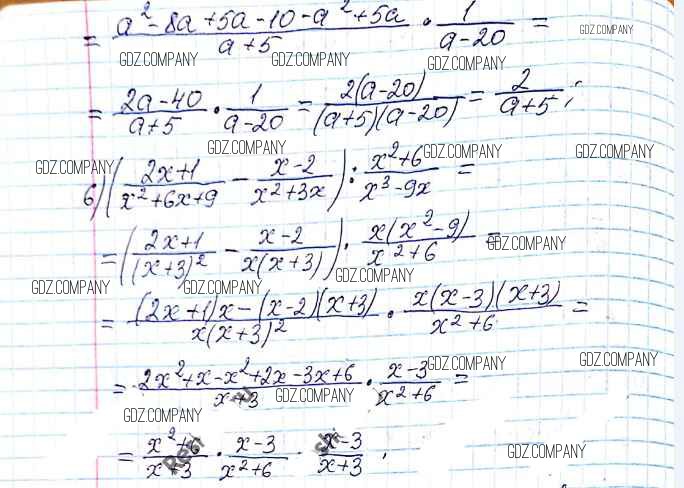 = (a² - 8a + 5a - 10 - a² + 5a)/(a + 5) · 1/(a - 20) =
GDZ.COMPANY
GDZ.COMPANY GDZ.COMPANY GDZ.COMPANY
= (2a - 40)/(a + 5) · 1/(a - 20) = 2(a - 20)/((a + 5)(a - 20)) = 2/(a + 5);
GDZ.COMPANY GDZ.COMPANY GDZ.COMPANY GDZ.COMPANY
б) ((2x + 1)/(x² + 6x + 9) - (x - 2)/(x² + 3x)) : (x² + 6)/(x³ - 9x) =
= ((2x + 1)/(x + 3)² - (x - 2)/(x(x + 3))) · x(x² - 9)/(x² + 6) =
GDZ.COMPANY
GDZ.COMPANY GDZ.COMPANY GDZ.COMPANY
= ((2x + 1)x - (x - 2)(x + 3))/(x(x + 3)²) · x(x - 3)(x + 3)/(x² + 6) =
GDZ.COMPANY GDZ.COMPANY
= (2x² + x - x² + 2x - 3x + 6)/(x + 3) · (x - 3)/(x² + 6) =
GDZ.COMPANY
GDZ.COMPANY
= (x² + 6)/(x + 3) · (x - 3)/(x² + 6) (x - 3)/(x + 3).
GDZ.COMPANY